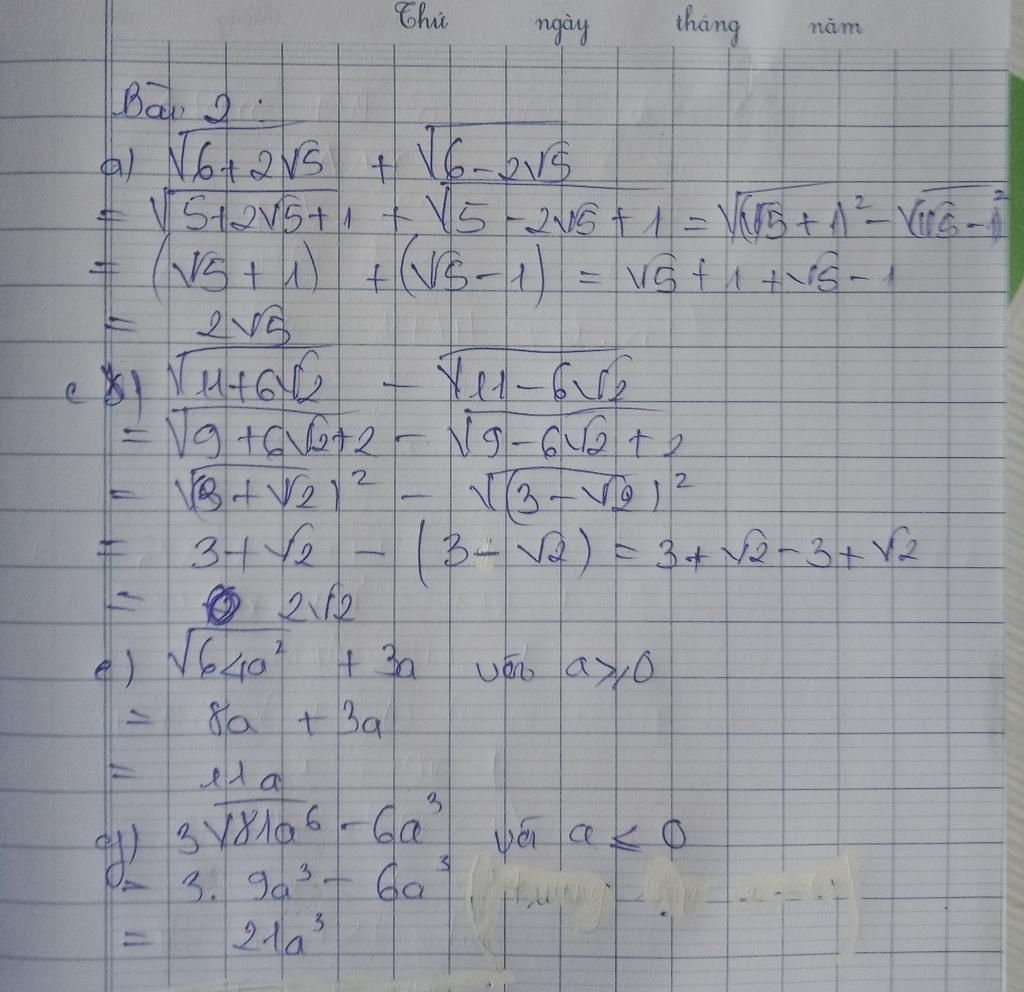 Thứ ngày tháng năm
Bài 2 :
a) √(6+2√5) + √(6-2√5)
= √(5+2√5+1) + √(5-2√5+1) = √(√5+1)² - √(√5-1)²
= (√5+1) + (√5-1) = √5+1+√5-1
= 2√5
c) √(11+6√2) - √(11-6√2)
= √(9+6√2+2) - √(9-6√2+2)
= √(3+√2)² - √(3-√2)²
= 3+√2 - (3-√2) = 3+√2-3+√2
= 2√2
e) √(64a²) + 3a với a ≥ 0
= 8a + 3a
= 11a
g) 3√(81a⁶) - 6a³ với a ≤ 0
= 3. 9a³ - 6a³
= 21a³